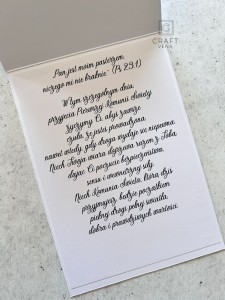 CRAFT
VENA
„Pan jest moim pasterzem,
niczego mi nie braknie.” (Ps 23,1)
W tym szczególnym dniu
przyjęcia Pierwszej Komunii Świętej
życzymy Ci, abyś zawsze
czuła, że jesteś prowadzona,
nawet wtedy, gdy droga wydaje się niepewna.
Niech Twoja wiara dojrzewa razem z Tobą,
dając Ci poczucie bezpieczeństwa,
sensu i wewnętrznej siły.
Niech Komunia Święta, którą dziś
przyjmujesz, będzie początkiem
pięknej drogi pełnej światła,
dobra i prawdziwych wartości.